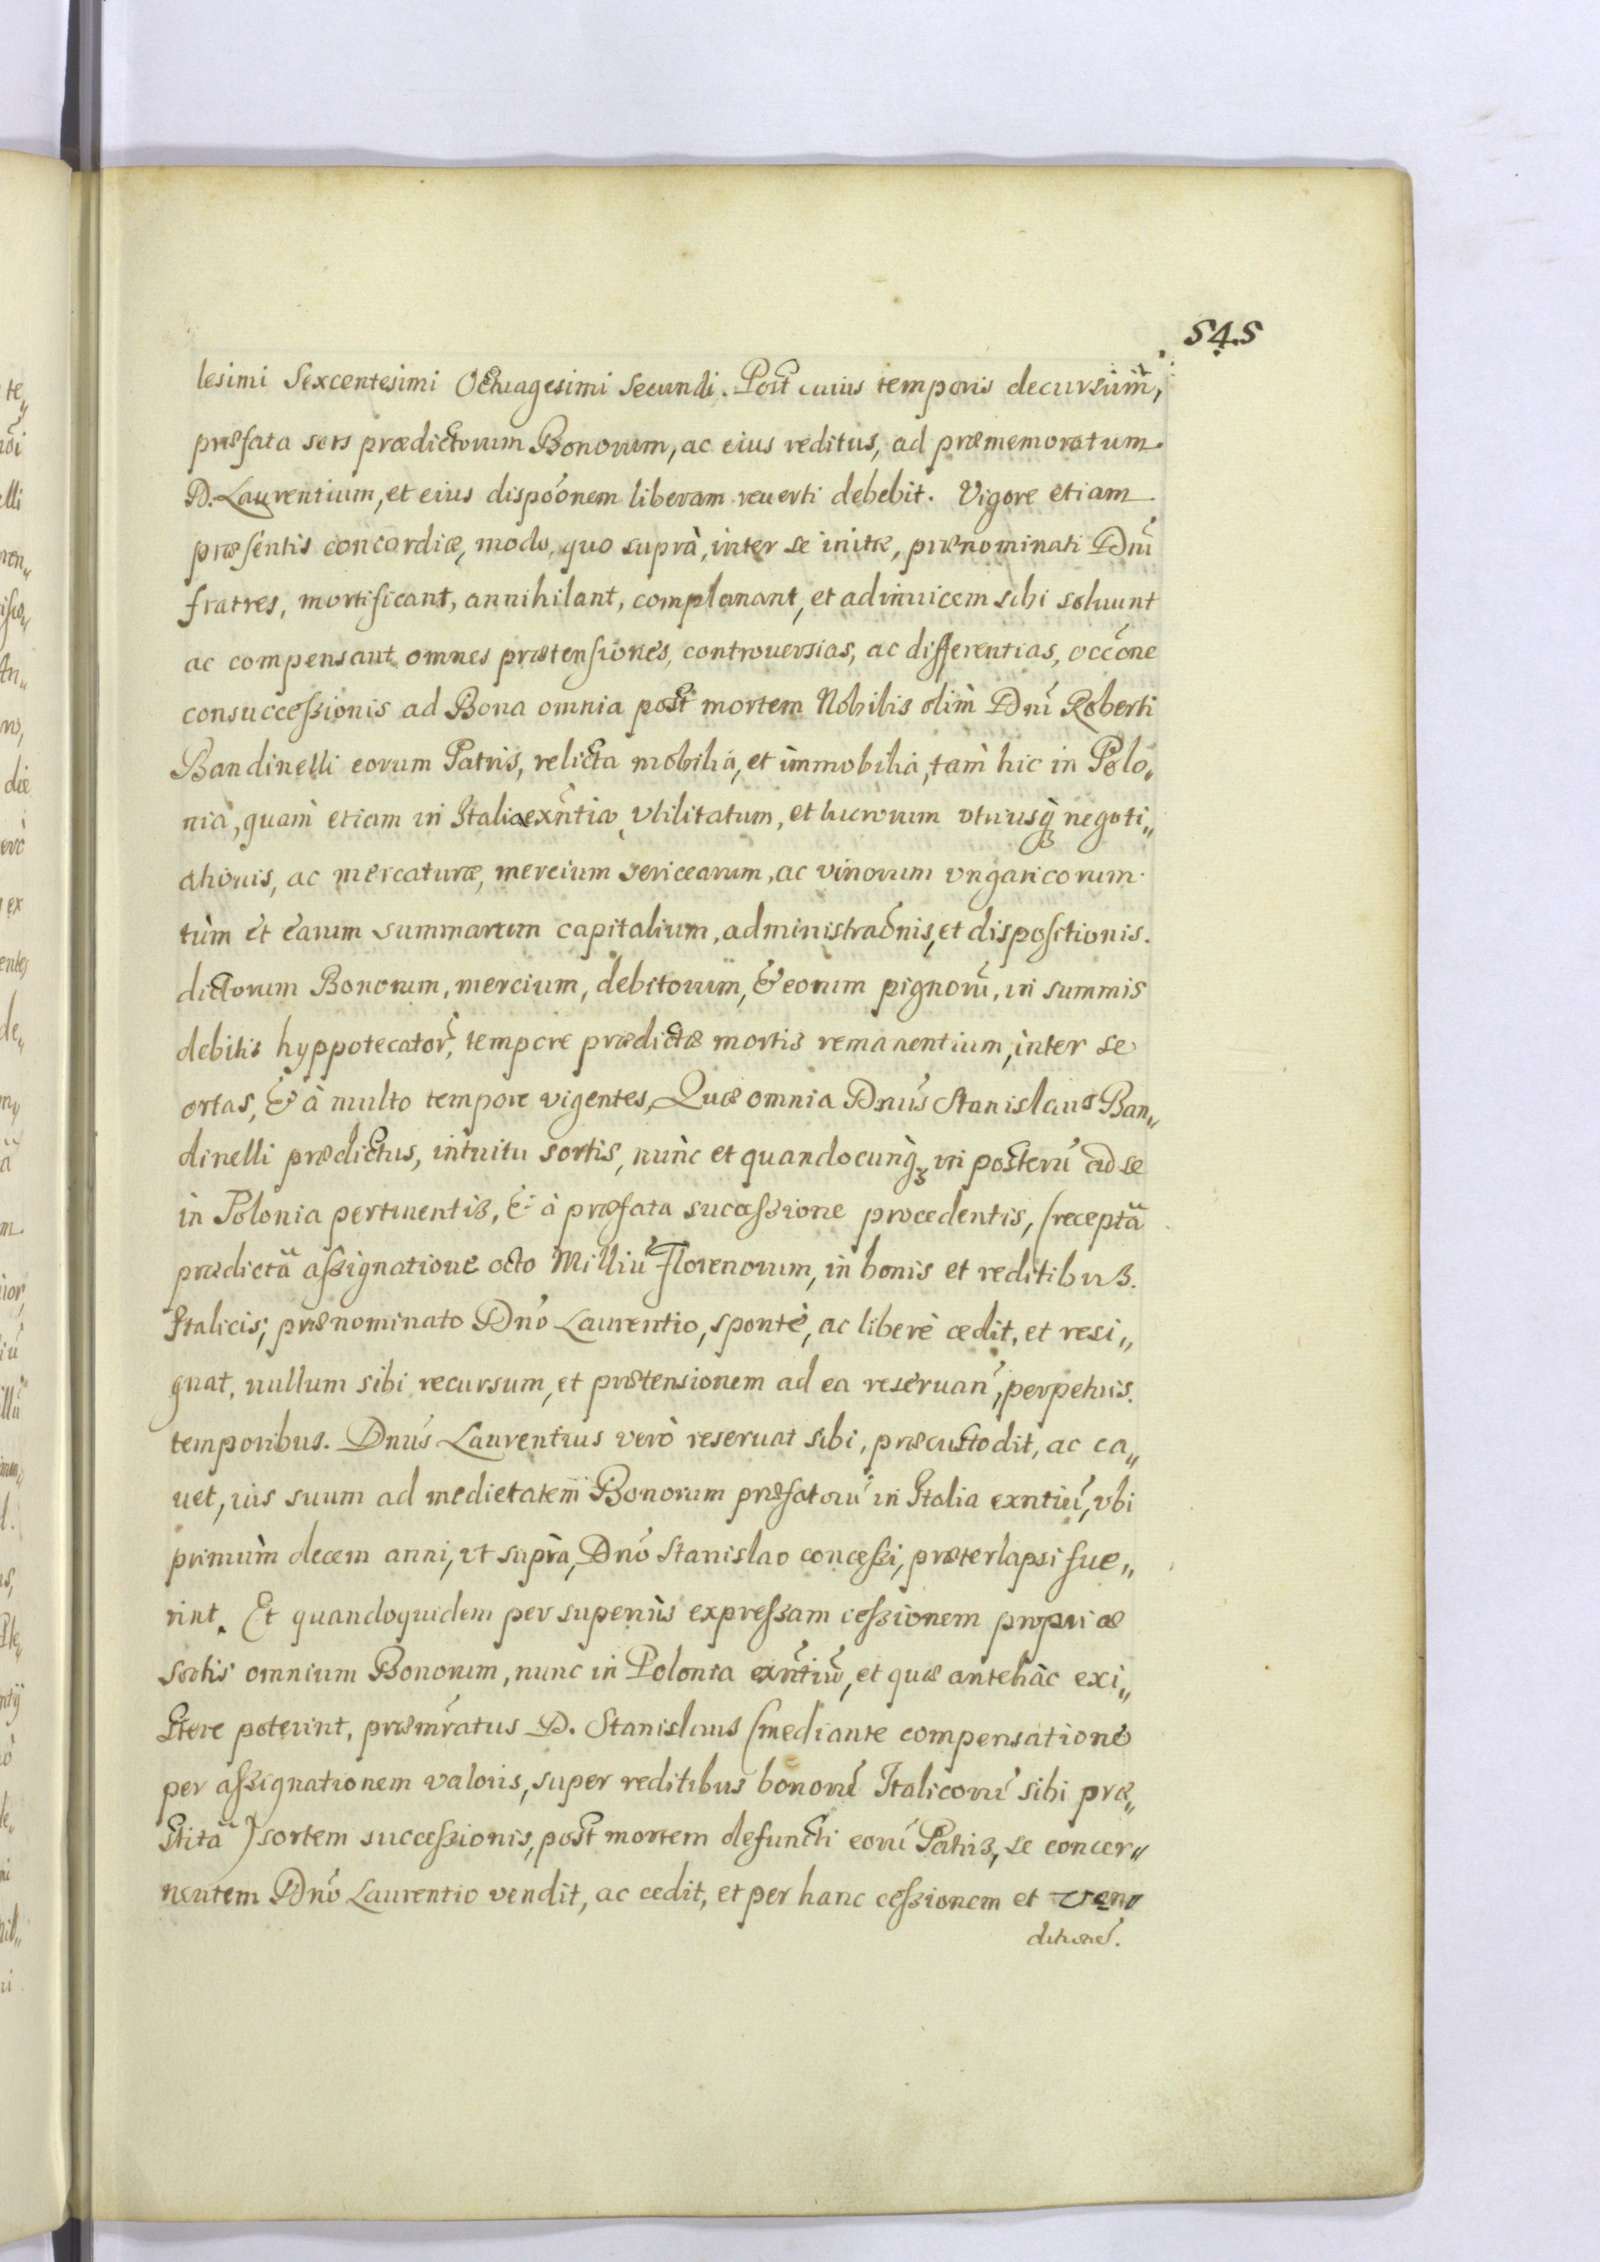 545
lesimi Sexcentesimi Octuagesimi Secundi. Post cuius temporis decursum,
præfata sors prædictorum Bonorum, ac eius reditus, ad præmemoratum
D. Laurentium, et eius dispoónem liberam reuerti debebit. Vigore etiam
præsentis concordiæ, modo, quo suprà, inter se initæ, prænominati Dnĩ
fratres, mortificant, annihilant, complanant, et adinuicem sibi soluunt
ac compensant omnes prætensiones, controuersias, ac differentias, occõne
consuccessionis ad Bona omnia post mortem Nobilis olim Dni Roberti
Bandinelli eorum Patris, relicta mobilia, et immobilia, tam hic in Polo„
nia, quam etiam in Italia exñtia, vtilitatum, et lucrorum vtriusq̃ negoti„
ationis, ac mercaturæ, mercium sericearum, ac vinorum vngaricorum
tùm et earum summarum capitalium, administraõnis, et dispositionis.
dictorum Bonorum, mercium, debitorum, & eorum pignorũ, in summis
debitis hyppotecator̃, tempore prædictæ mortis remanentium, inter se
ortas, & à multo tempore vigentes, Quæ omnia Dnus Stanislaus Ban„
dinelli prædictus, intuitu sortis, nunc et quandocunq̃, in posterũ ad se
in Polonia pertinentis, & à præfata successione procedentis, (receptâ
prædictâ assignatione octo Milliũ Florenorum, in bonis et reditibus
Italicis; prænominato Dnõ Laurentio, spontè, ac liberè cedit, et resi„
gnat, nullum sibi recursum, et prætensionem ad ea reseruan̄, perpetuis
temporibus. Dnus Laurentius verò reseruat sibi, præcustodit, ac ca„
uet, ius suum ad medietatem Bonorum præfatorũ in Italia exntiũ, vbi
primùm decem anni, vt suprà, Dnõ Stanislao concessi, præterlapsi fue„
rint. Et quandoquidem per superiùs expressam cessionem propriæ
sortis omnium Bonorum, nunc in Polonia exñtiũ, et quæ antehàc exi„
stere poterint, præmr̃atus D. Stanislaus (mediante compensatione
per assignationem valoris, super reditibus bonorũ Italicorũ sibi præ„
stitâ) sortem successionis, post mortem defuncti eorũ Patris, se concer„
nentem Dnõ Laurentio vendit, ac cedit, et per hanc cessionem et ven„
ditionẽ.